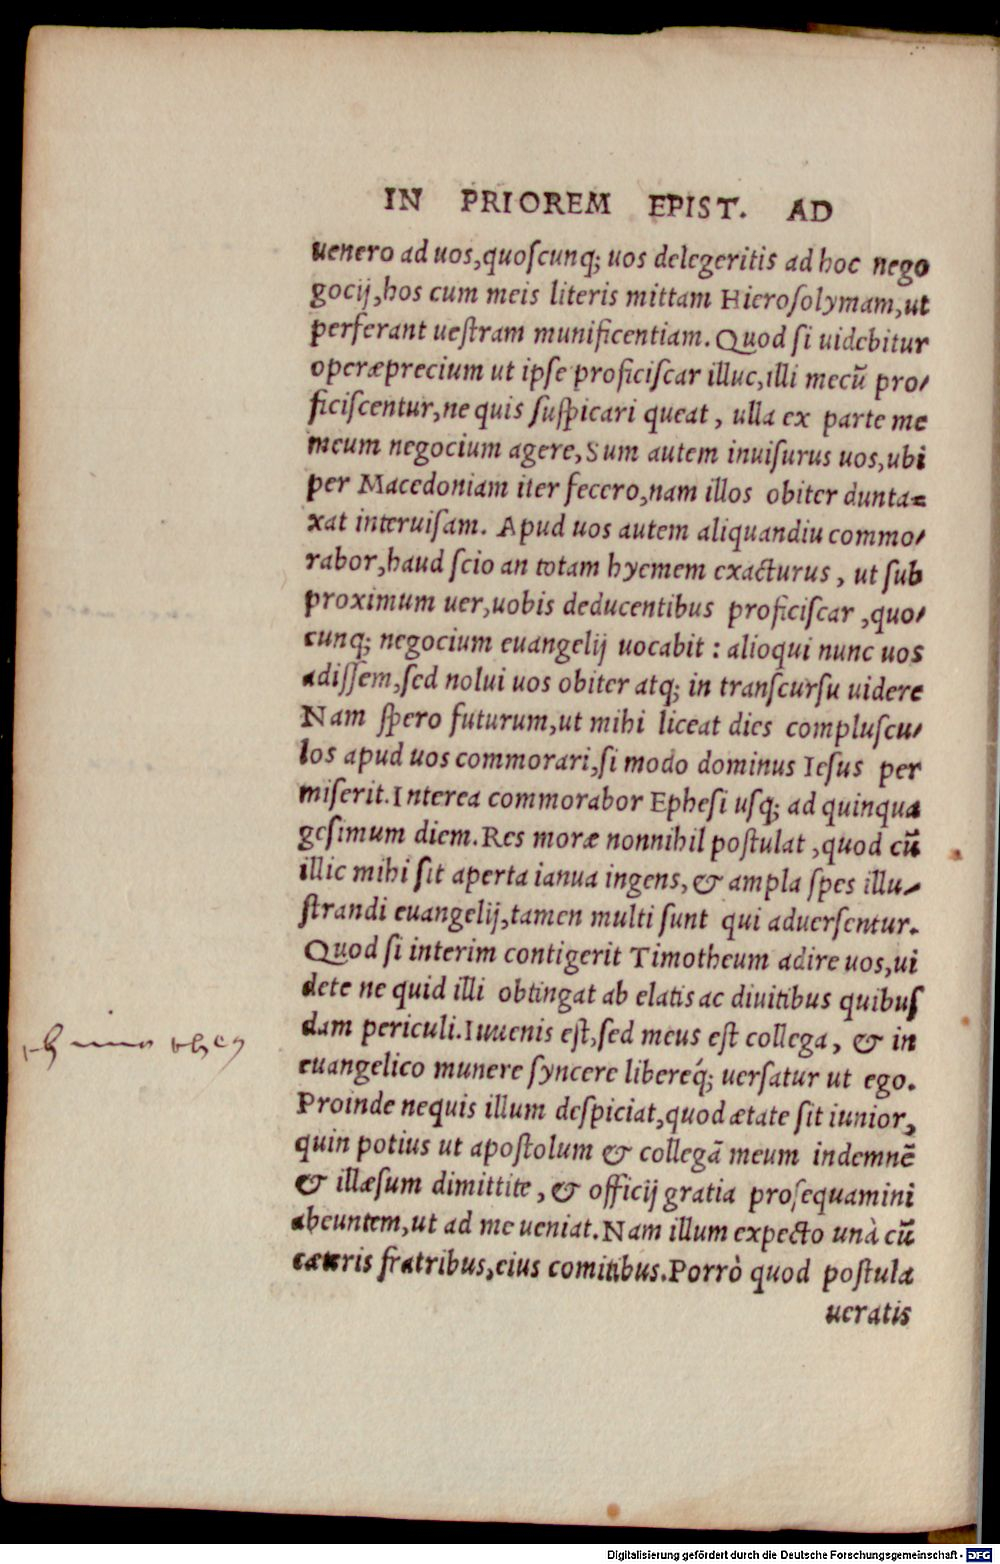 IN PRIOREM EPIST. AD
uenero ad uos,quoſcunq; uos delegeritis ad hoc nego
gocij,hos cum meis literis mittam Hieroſolymam,ut
perferant ueſtram munificentiam. Quod ſi uidebitur
operæprecium ut ipſe proficiſcar illuc,illi mecũ pro/
ficiſcentur,ne quis ſuſpicari queat, ulla ex parte me
meum negocium agere,Sum autem inuiſurus uos,ubi
per Macedoniam iter fecero,nam illos obiter dunta=
xat interuiſam. Apud uos autem aliquandiu commo/
rabor,haud ſcio an totam hyemem exacturus, ut ſub
proximum uer,uobis deducentibus proficiſcar ,quo/
cunq; negocium euangelij uocabit : alioqui nunc uos
adiſſem,ſed nolui uos obiter atq; in tranſcurſu uidere
Nam ſpero futurum,ut mihi liceat dies compluſcu/
los apud uos commorari,ſi modo dominus Ieſus per
miſerit.Interea commorabor Epheſi uſq; ad quinqua
geſimum diem.Res moræ nonnihil poſtulat ,quod cũ
illic mihi ſit aperta ianua ingens,& ampla ſpes illu/
ſtrandi euangelij,tamen multi ſunt qui aduerſentur.
Quod ſi interim contigerit Timotheum adire uos,ui
dete ne quid illi obtingat ab elatis ac diuitibus quibuſ
dam periculi.Iuuenis eſt,ſed meus eſt collega, & in
euangelico munere ſyncere libereq́; uerſatur ut ego.
Proinde nequis illum deſpiciat,quod ætate ſit iunior,
quin potius ut apoſtolum & collegã meum indemnẽ
& illæſum dimittite, & officij gratia proſequamini
abeuntem,ut ad me ueniat.Nam illum expecto unà cũ
cæteris fratribus,eius comitibus.Porrò quod poſtula
ueratis
Digitalisierung gefördert durch die Deutsche Forschungsgemeinschaft - DFG